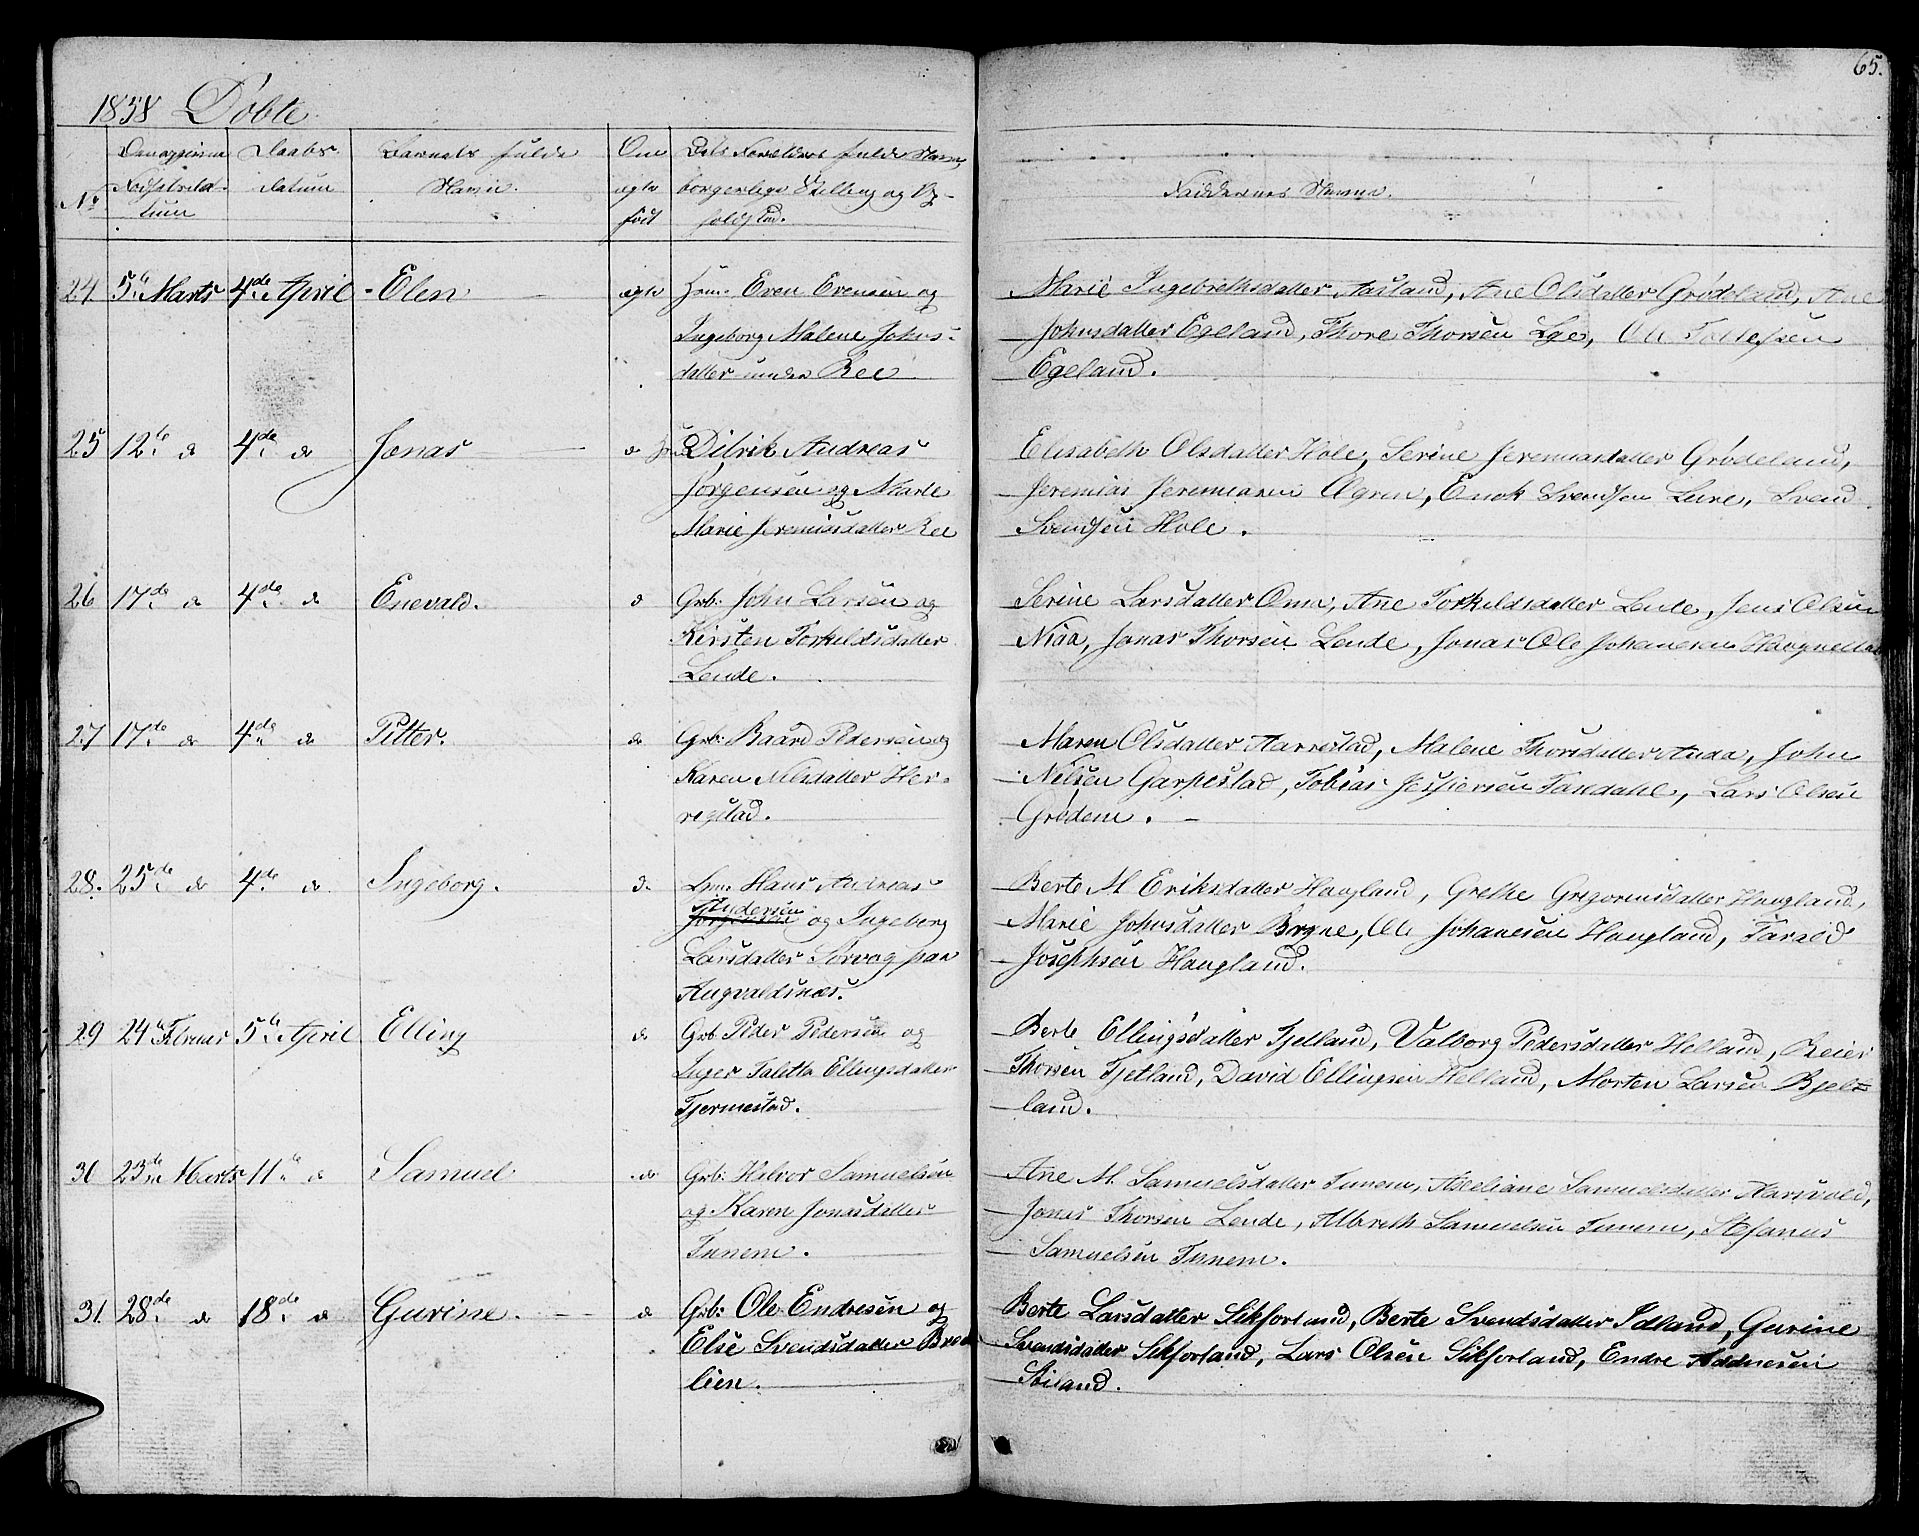 65.
1858 Døbte.
No
Dato
Daabs
datum
Barnets fulde
Navn.
Om
ægte
født
borgerlige Stilling og Op-
holdsted.
Faddernes Navne.
24 5te Marts 4de April - Elen ægte Hmd. Even Evensen og
Ingeborg Malene Johns-
datter under Ree
Marie Ingebrethsdatter Aasland, Ane Olsdatter Grødeland, Ane
Johnsdatter Egeland, Thore Thorsen Lye, Ole Tollefsen
Egeland.
25 12te d 4de d Jonas d Didrik Andreas
Jørgensen og Marte
Marie Jeremiasdatter Ree
Elisabeth Olsdatter Hole, Serine Jeremiasdatter Grødeland,
Jeremias Jeremiasen Øgren, Enok Svendsen Lure, Svend
Svendsen Hole.
26 17de d 4de d Enevald. d Grb: John Larsen og
Kirsten Torkildsdatter
Lende.
Serine Larsdatter Oma, Ane Torkildsdatter Lende, Jens Olsen
Niaa, Jonas Thorsen Lende, Jonas Ole Johanesen
27 17de d 4de d Pitter. d Grb: Baard Pedersen og
Karen Nilsdatter Her-
regstad.
Maren Olsdatter Aarrestad, Malene Thorsdatter Anda, John
Nelsen Garpestad, Tobias Jespersen Tandahl, Lars Olsen
Grødem.
28. 25de d 4de d Ingeborg. d Lsm: Hans Andreas
Andersen
Jørgensen og Ingeborg
Larsdatter Sørvaag paa
Augvaldsnæs.
Berte M. Eriksdatter Haugland, Grethe Gregoriusdatter Haugland,
Marie Johnsdatter Bryne, Ole Johanesen Haugland, Tarald
Josephsen Haugland.
29 24de Februar 5te April Elling d Grb Peder Pedersen og
Inger Taletta Ellingsdatter
Tjermestad.
Berte Ellingsdatter Tjelland, Valborg Pedersdatter Helland, Reier
Thorsen Tjetland, David Ellingsen Helland, Morten Larsen Bjel-
land.
30 23de Marts 11te d Samuel d Grb: Halvor Samuelsen
og Karen Jonasdatter
Tunem.
Ane M. Samuelsdatter Tunem, Axeliane Samuelsdatter Aarsvold,
Jonas Thorsen Lende, Albreth Samuelsen Tunem, Stefanus
Samuelsen Tunem.
31. 28de d 18de d Gurine. d Grb: Ole Endresen og
Else Svendsdatter Bræk
leien.
Berte Larsdatter Sikforland, Berte Svendsdatter Idland, Gurine
Svendsdatter Sikforland, Lars Olsen Sikforland, Endre Addnesen